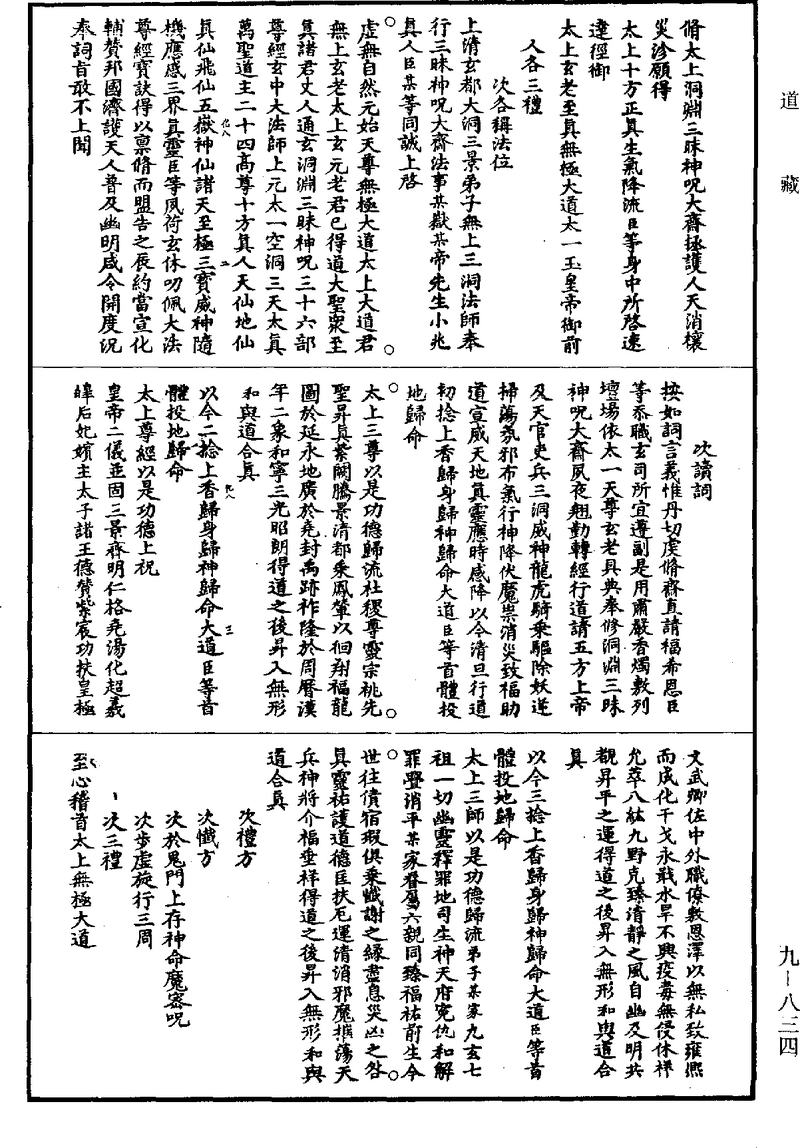 道藏
脩太上洞淵三昧神呪大齋拯護人天消禳
災沴願得
太上十方正真生氣降流臣等身中所啓速
達徑御
太上玄老至真無極大道太一玉皇帝御前
人各三禮
次各稱法位
上清玄都大洞三景弟子無上三洞法師奉
行三昧神呪大齋法事某嶽某帝先生小兆
真人臣某等同誠上啓
虛無自然元始天尊無極大道太上大道君
無上玄老太上玄元老君已得道大聖衆至
真諸君丈人通玄洞淵三昧神呪三十六部
尊經玄中大法師上元太一空洞三天太真
萬聖道主二十四高尊十方真人天仙地仙
真仙飛仙五嶽神仙諸天至極三寶威神隨
機應感三界真靈臣等夙荷玄休叨佩大法
尊經寶訣得以稟脩而盟告之辰約當宣化
輔贊邦國濟護天人普及幽明咸令開度況
奉詞旨敢不上聞
次讀詞
按如詞言義惟丹切虔脩齋直請福希恩臣
等忝職玄司所宜遵副是用肅嚴香燭敷列
壇場依太一天尊玄老具典奉修洞淵三昧
神呪大齋夙夜翹勤轉經行道請五方上帝
及天官吏兵三洞威神龍虎騎乘驅除妖逆
掃蕩氛邪布氣行神降伏魔祟消災致福助
道宣威天地真靈應時感降以今清旦行道
初捻上香歸身歸神歸命大道臣等首體投
地歸命
太上三尊以是功德歸流社稷尊靈宗祧先
聖昇真紫闕騰景清都乘鳳輦以徊翔福龍
圖於延永地廣於堯封禹跡祚隆於周曆漢
年二象和寧三光昭朗得道之後昇入無形
和與道合真
以今二捻上香歸身歸神歸命大道臣等首
體投地歸命
太上尊經以是功德上祝
皇帝二儀並固三景齊明仁格堯湯化超羲
皥后妃嬪主太子諸王德贊紫宸功扶皇極
文武卿佐中外職僚敷恩澤以無私致雍熙
而成化干戈永戢水旱不興疫毒無侵休祥
允萃八紘九野克臻清靜之風自幽及明共
觀昇平之運得道之後昇入無形和與道合
真
以今三捻上香歸身歸神歸命大道臣等首
體投地歸命
太上三師以是功德歸流弟子某家九玄七
祖一切幽靈釋罪地司生神天府寃仇和解
罪釁消平某家眷屬六親同臻福祐前生今
世往債宿瑕俱乘懺謝之緣盡息災凶之咎
真靈祐護道德臣扶厄運清消邪魔擯蕩天
兵神將介福垂祥得道之後昇入無形和與
道合真
次禮方
次懺方
次於鬼門上存神命魔密呪
次步虛旋行三周
次三禮
至心稽首太上無極大道
九－八三四